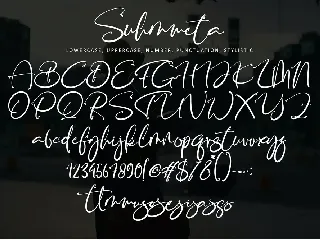 Suhmmeta
LOWERCASE, UPPERCASE, NUMBER, PUNCTUATION, STYLISTIC
ABCDEFGHIJKLMN
OPQRSTUVWXYZ
abcdefghijklmnopqrstuvwxyz
1234567890!@#$%&()